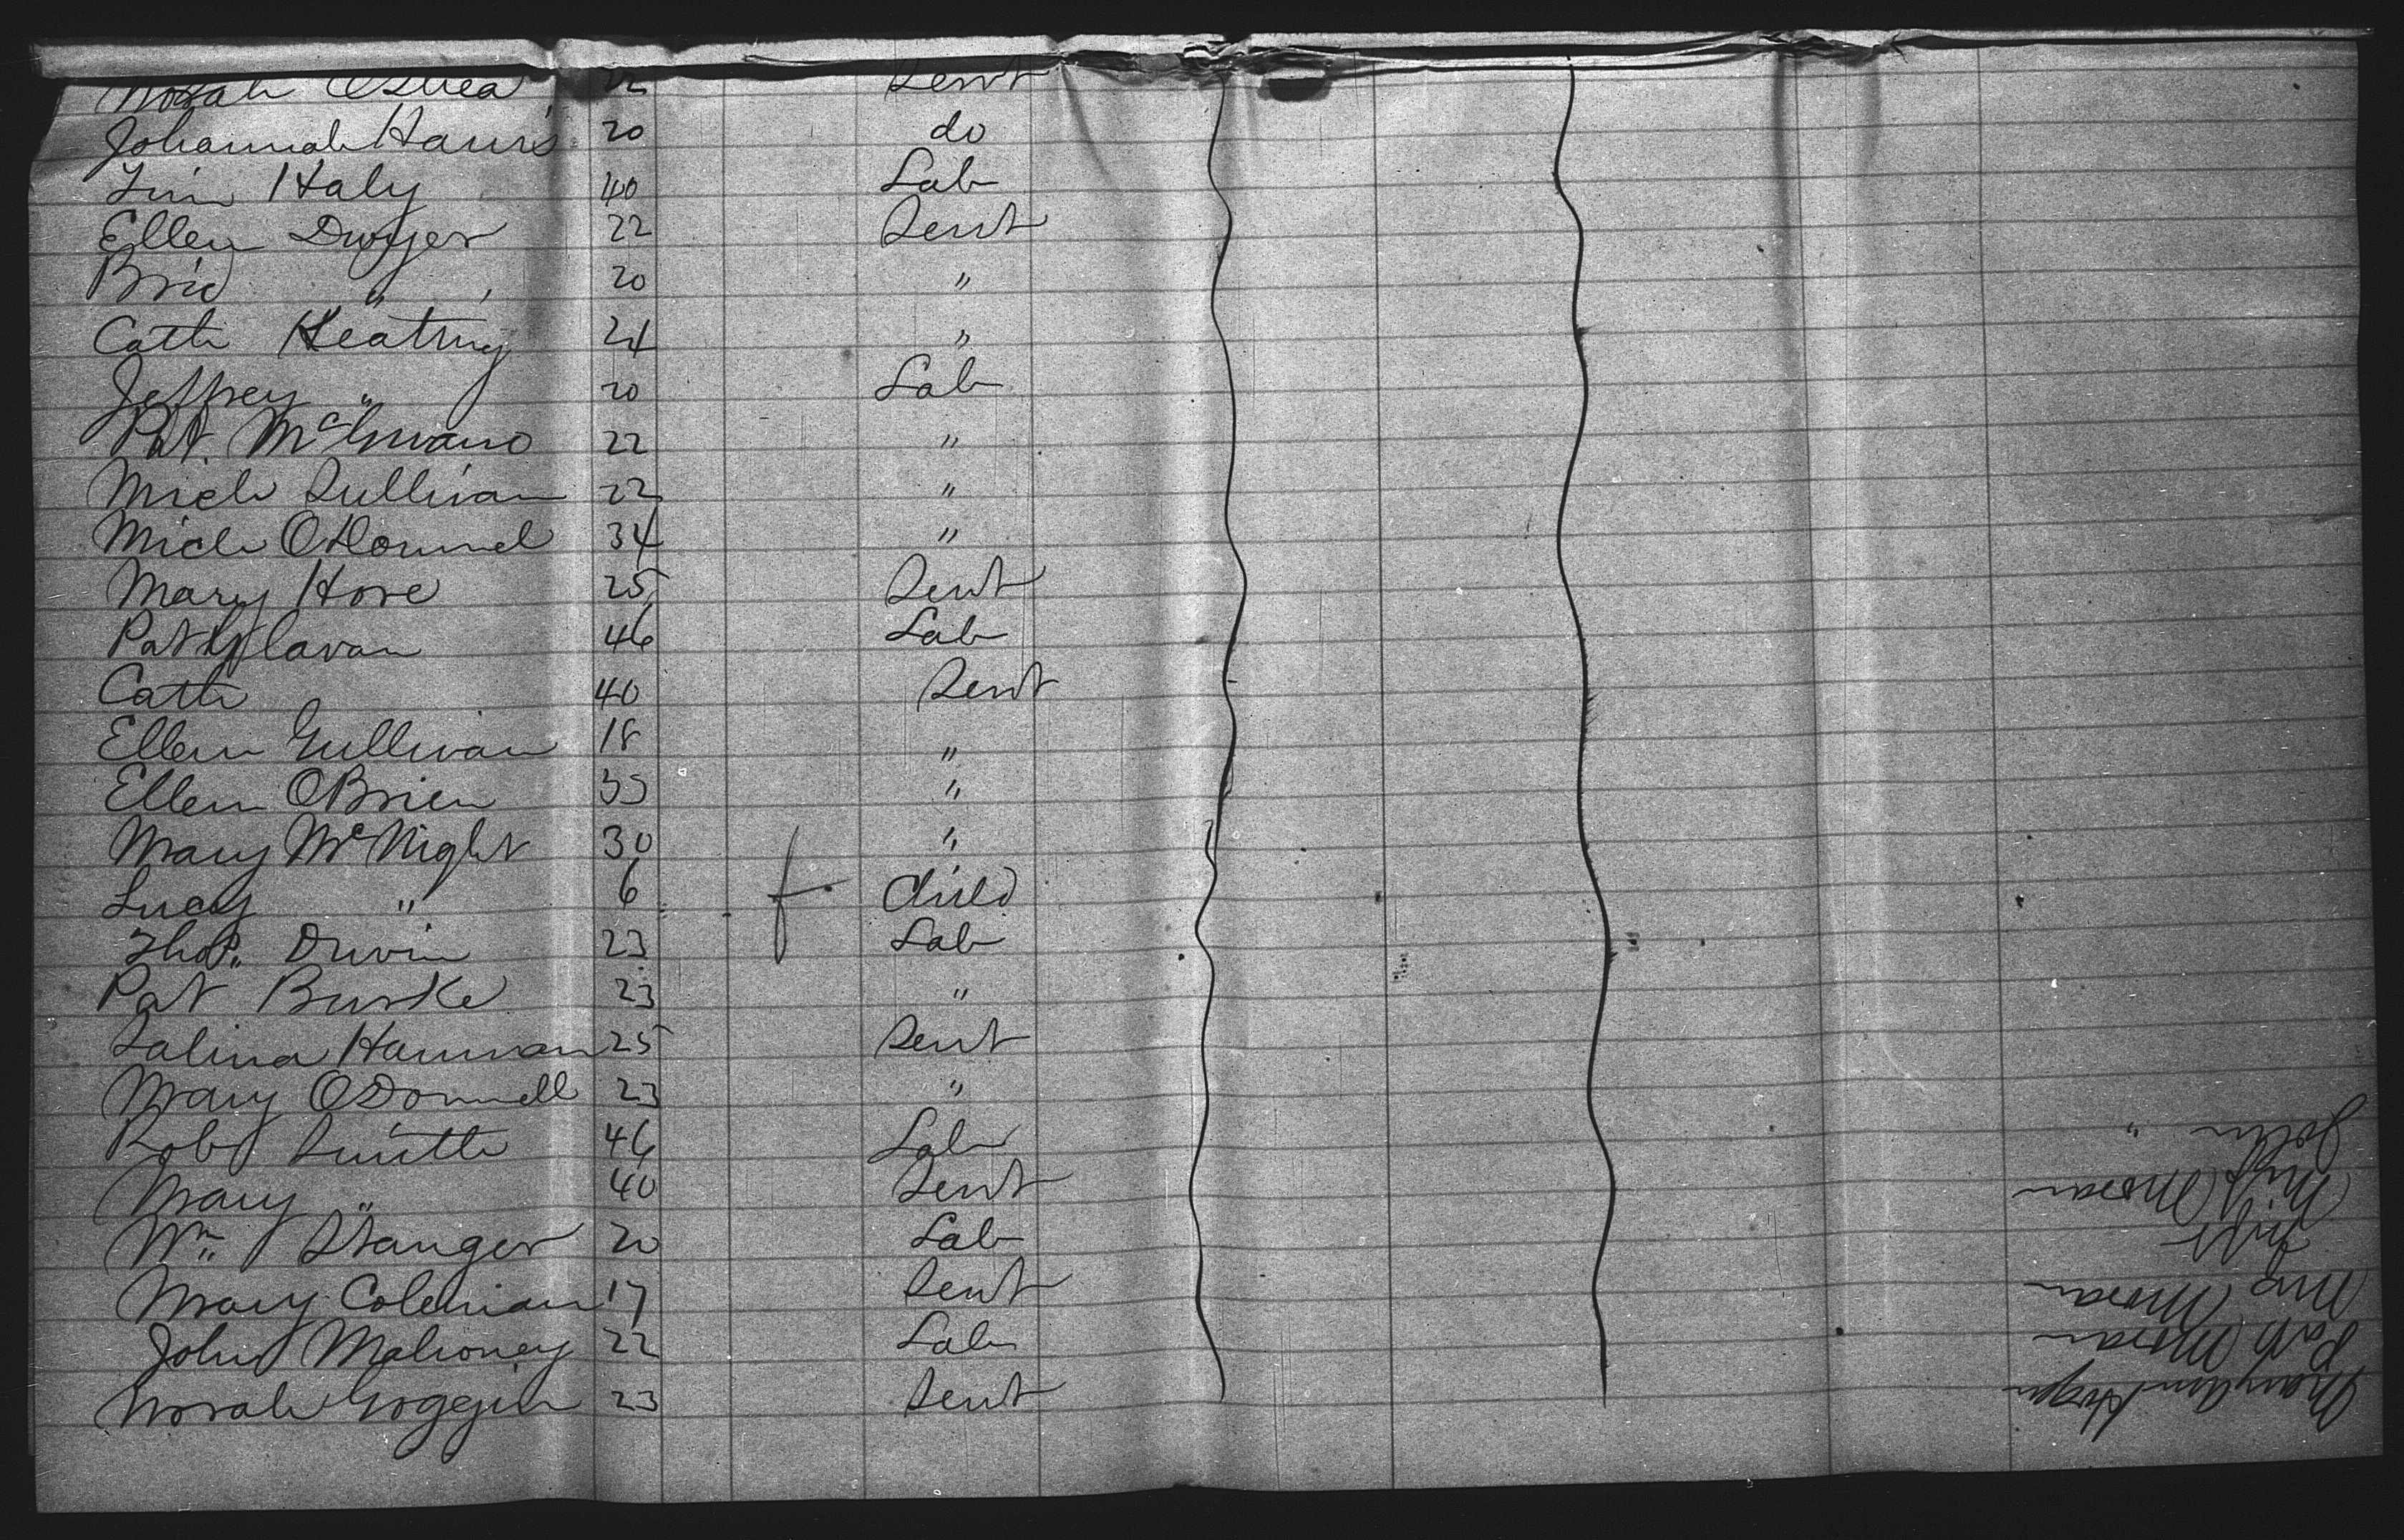 Norah OShea 22 Servt
Johannah Harris 20 do
Tim Haly 40 Lab
Ellen Dwyer 22 Servt
Brid " 20 "
Cath Keating 24 "
Jeffrey " 20 Lab
Pat. 22 "
Mich Sullivan 22 "
Mich ODonnel 34 "
Mary Hore 25 Servt
Pat Glavan 46 Lab
Cath 40 Servt
Ellen Sullivan 18 "
Ellen OBrien 35 "
Mary McNight 30 "
Lucy " 6 f. Child
Thos. 23 Lab
Pat Burke 23 "
Salina Hannan 25 Servt
Mary ODonnell 23 "
Robt Smith 46 Lab
Mary " 40 Servt
Wm Stanger 20 Lab
Mary Coleman 17 Servt
John Mahoney 22 Lab
Norah Goggin 23 Servt
Mary Ann
Pat Moran
Mrs Moran
Moran
John "